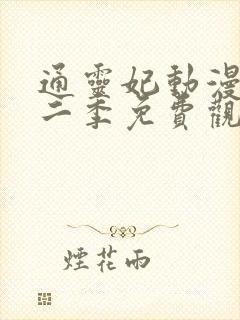 通靈妃動漫
二季免費觀
煙花雨